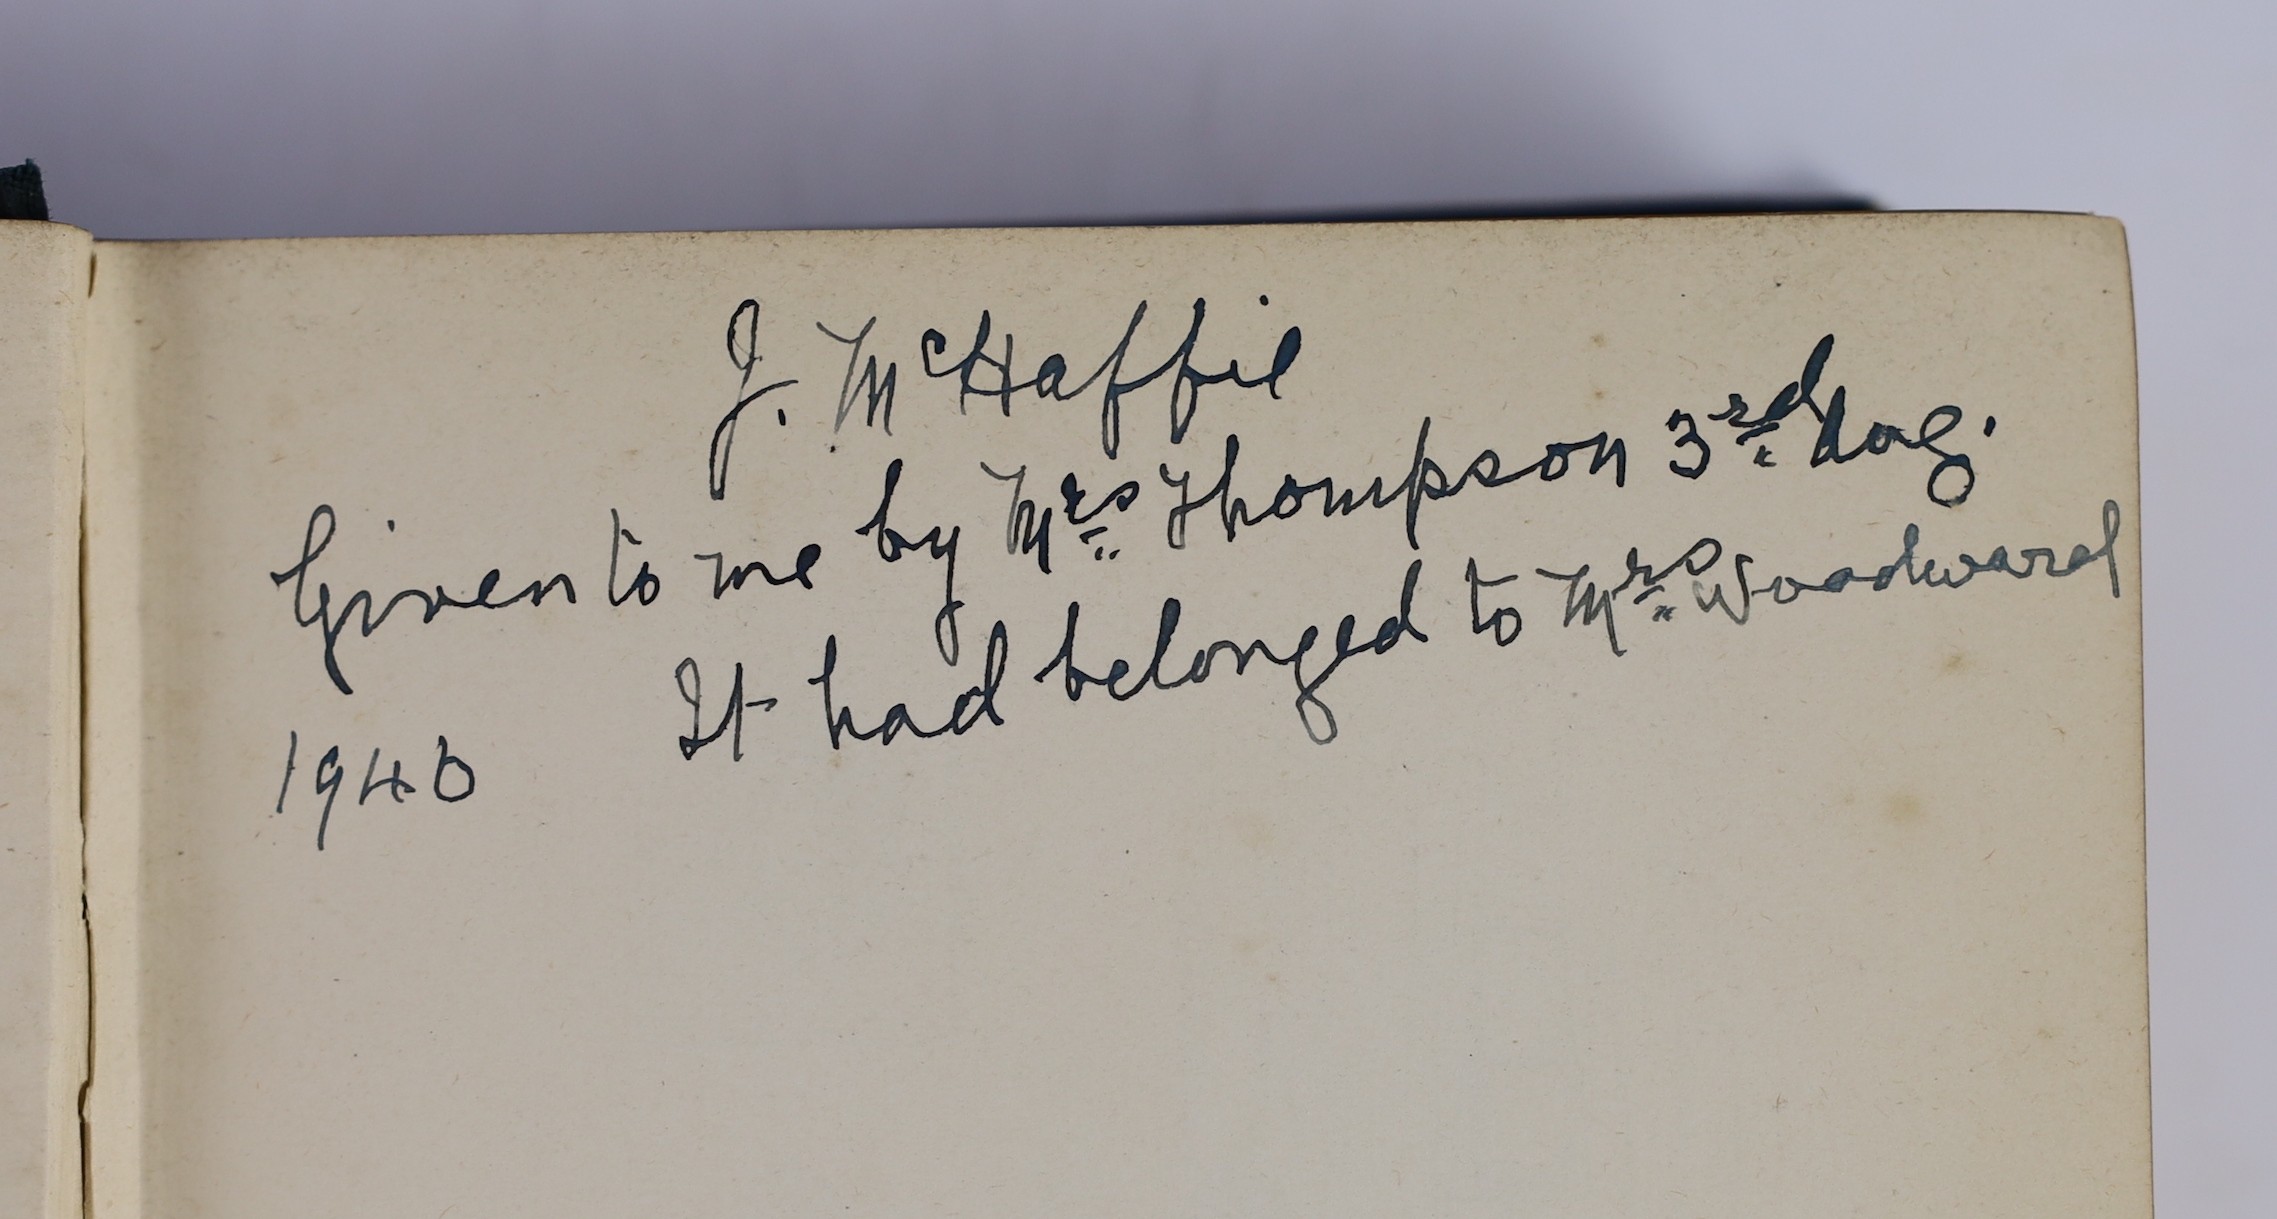 J. McHaffie
Given to me by Mrs Thompson 3rd
It had belonged to Mrs Woodward
1940